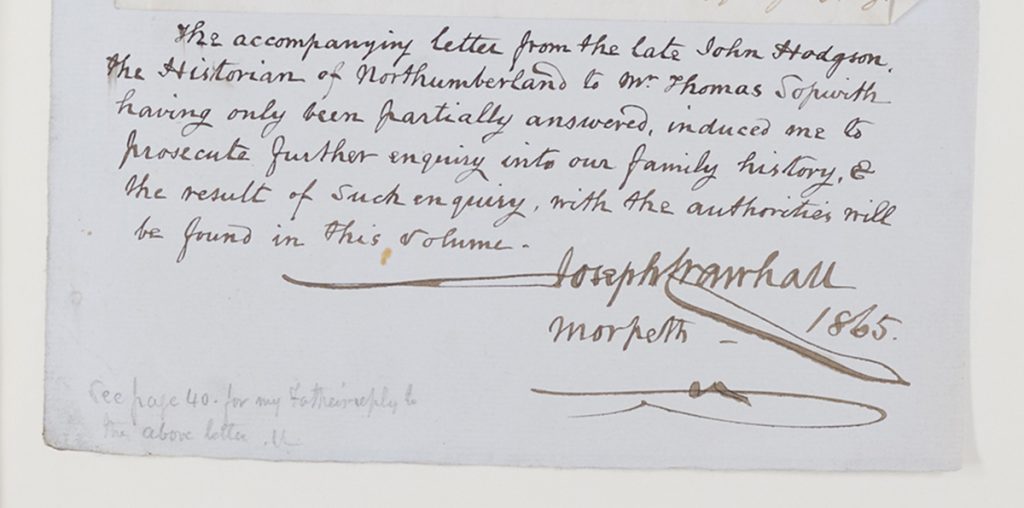 The accompanying letter from the late John Hodgson,
the Historian of Northumberland to Mr Thomas Sopwith
having only been partially answered, induced me to
prosecute further enquiry into our family history, &
the result of such enquiry, with the authorities will
be found in this volume.
Joseph Crawhall
Morpeth – 1865.
See page 40. for my Father's reply to
the above letter.